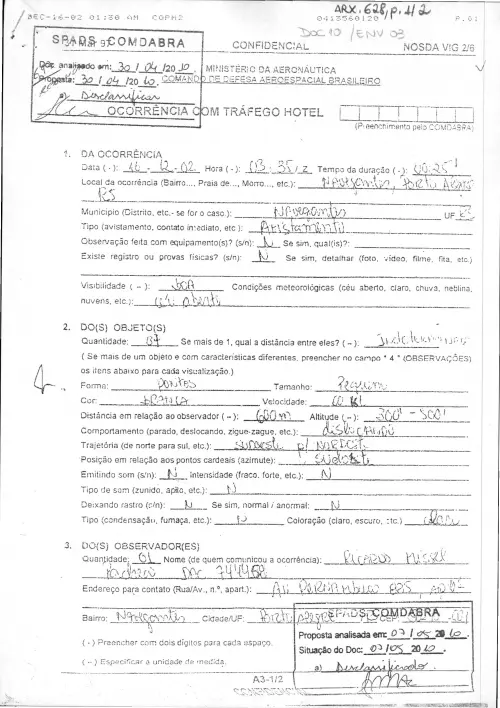 ARX. 628, p. 1/2
DEC-16-02 01:30 AM COPM2 0413560120 P.01
DOC 10 / ENV 03
SPADS COMDABRA
CONFIDENCIAL NOSDA V/G 2/6
Doc analisado em: 30 / 04 / 2010 MINISTÉRIO DA AERONÁUTICA
Proposta: 30 / 04 / 2010 COMANDO DE DEFESA AEROESPACIAL BRASILEIRO
a) Desclassificar
OCORRÊNCIA COM TRÁFEGO HOTEL
(Preenchimento pelo COMDABRA)
1. DA OCORRÊNCIA
Data ( - ): 16 - 12 - 02 Hora ( - ): 03:35 Z Tempo da duração ( - ): 00:25'
Local da ocorrência (Bairro..., Praia de..., Morro..., etc.): Navegantes, Porto Alegre
RS
Município (Distrito, etc.- se for o caso.): Navegantes UF
Tipo (avistamento, contato imediato, etc): Avistamento
Observação feita com equipamento(s)? (s/n): N Se sim, qual(is)?:
Existe registro ou provas físicas? (s/n): N Se sim, detalhar (foto, vídeo, filme, fita, etc.)
Visibilidade ( – ): BOA Condições meteorológicas (céu aberto, claro, chuva, neblina,
nuvens, etc.): céu aberto
2. DO(S) OBJETO(S)
Quantidade: 07 Se mais de 1, qual a distância entre eles? ( – ):
( Se mais de um objeto e com características diferentes, preencher no campo " 4 " (OBSERVAÇÕES)
os itens abaixo para cada visualização.)
Forma: PONTOS Tamanho: Pequeno
Cor: BRANCA Velocidade:
Distância em relação ao observador ( – ): 600 m Altitude ( – ): 300' - 500'
Comportamento (parado, deslocando, zigue-zague, etc.): deslocando
Trajetória (de norte para sul, etc.): sudoeste p/ nordeste
Posição em relação aos pontos cardeais (azimute): sudoeste
Emitindo som (s/n): N Intensidade (fraco, forte, etc.): N
Tipo de som (zunido, apito, etc.): N
Deixando rastro (s/n): N Se sim, normal / anormal: N
Tipo (condensação, fumaça, etc.): N Coloração (claro, escuro, etc.)
3. DO(S) OBSERVADOR(ES)
Quantidade: 01 Nome (de quem comunicou a ocorrência): Ricardo
Endereço para contato (Rua/Av., n.º, apart.): Av. Pernambuco
Bairro: Navegantes Cidade/UF: Porto Alegre CEP:
SPADS COMDABRA
( - ) Preencher com dois dígitos para cada espaço. Proposta analisada em: 07 / 05 2010
( – ) Especificar a unidade de medida. Situação do Doc: 07 / 05 2010.
a) Desclassificado.
A3-1/2
CONFIDENCIAL